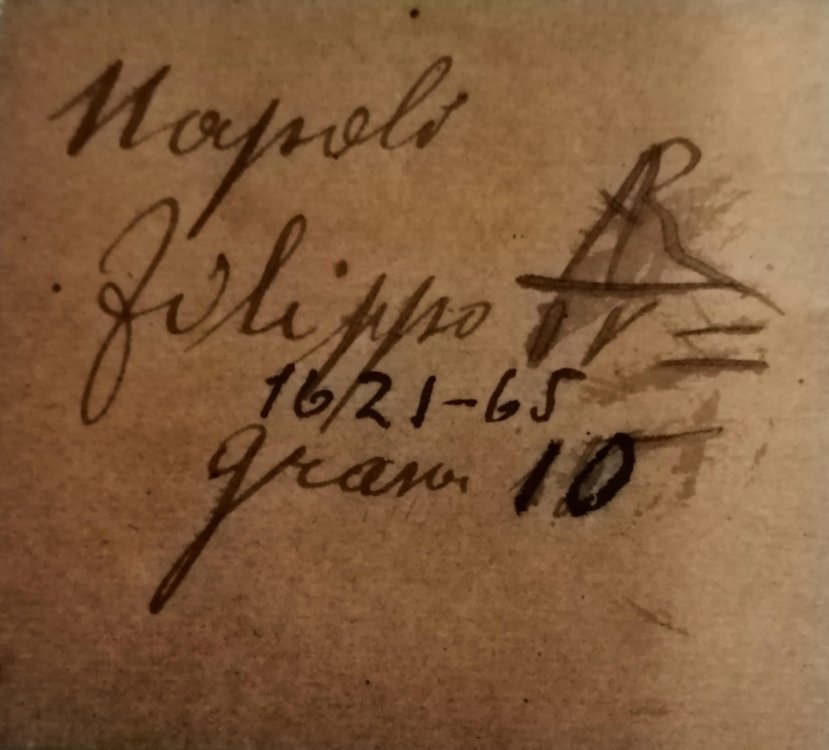 Napoli
Filippo IV
1621-65
grana 10